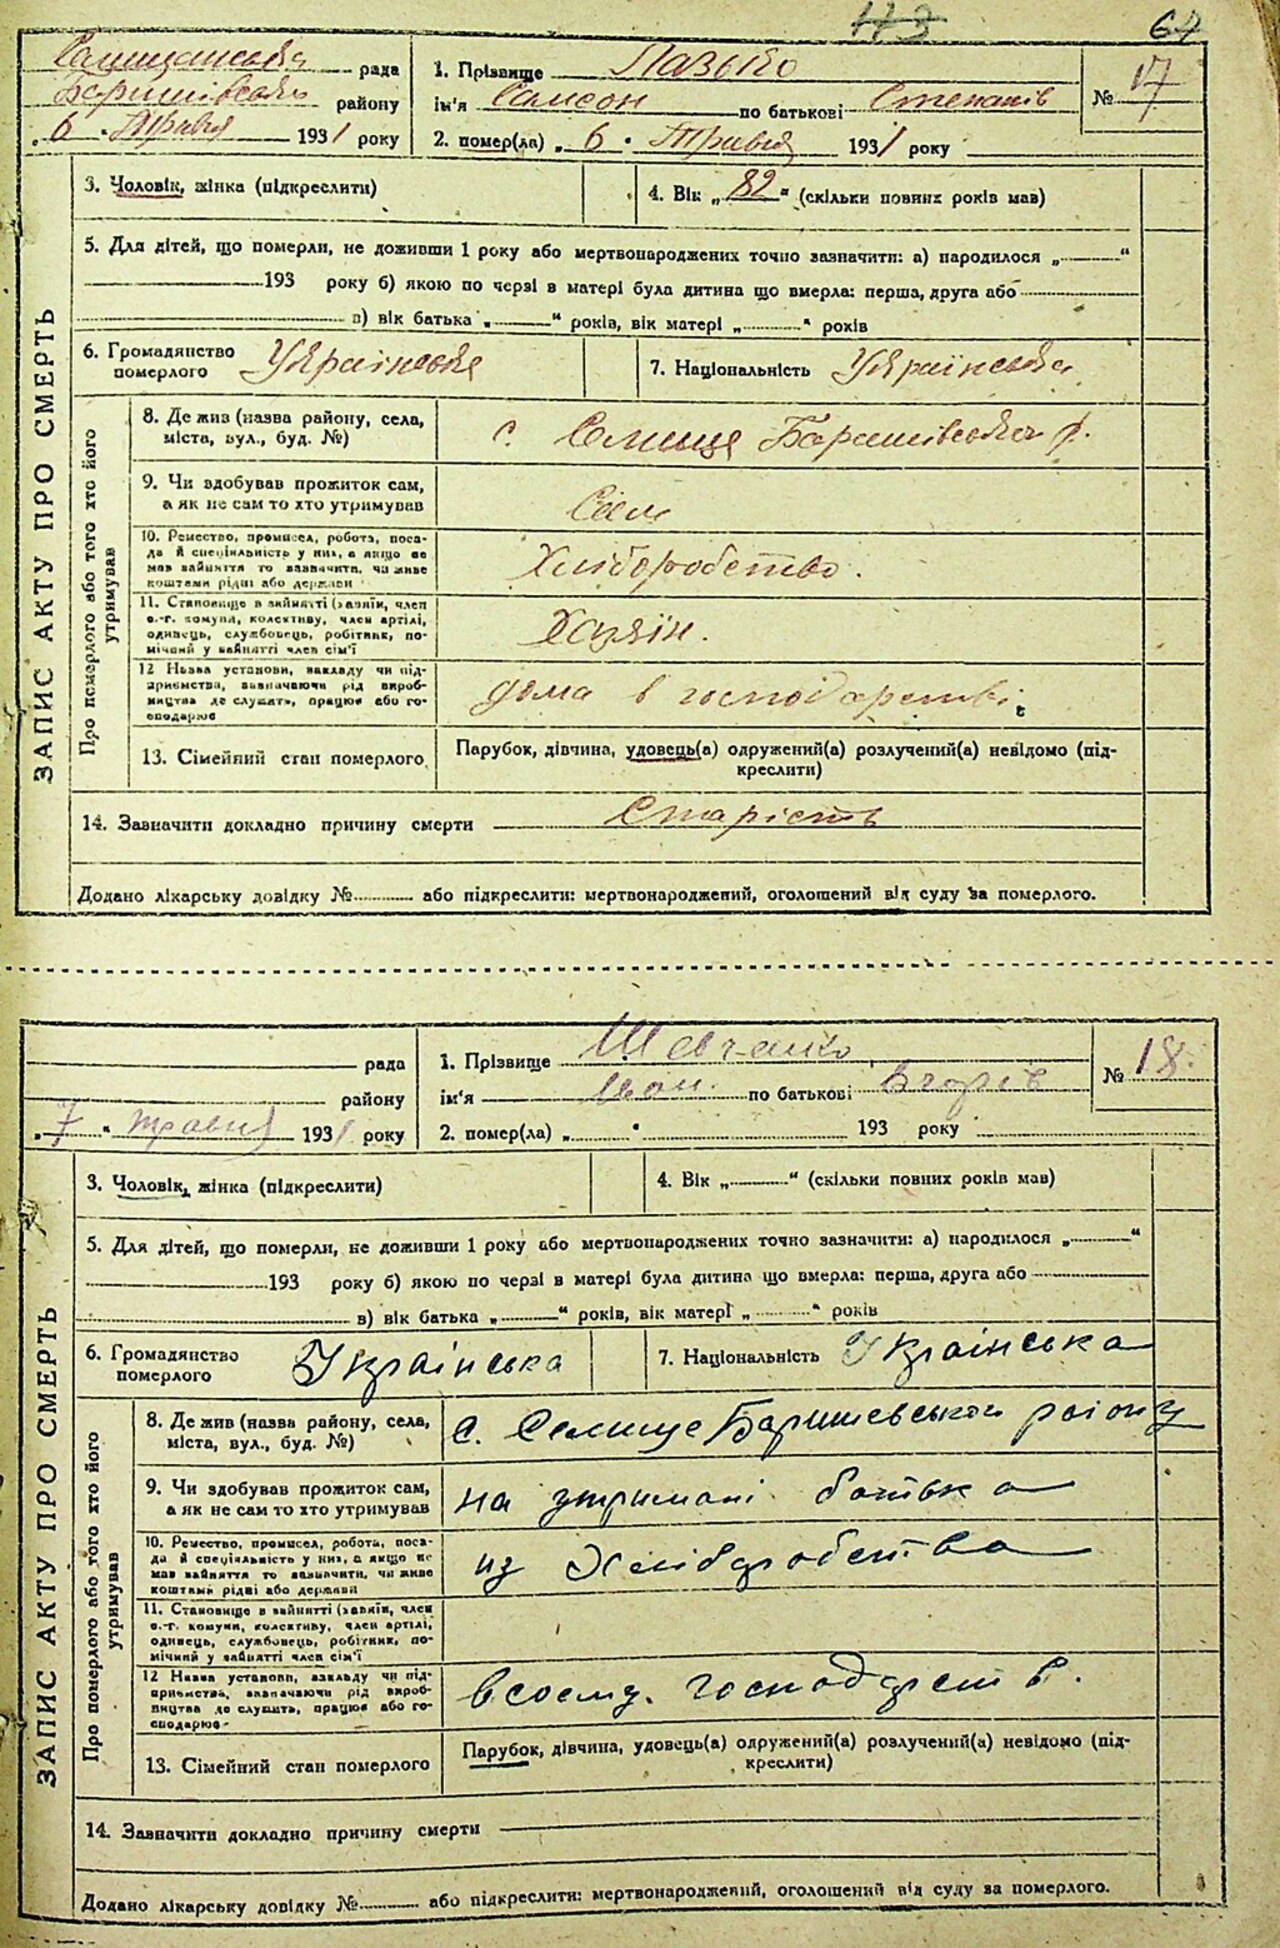 113 67
Селищанська рада
Баришівського району
„ 6 " Травня 1931 року
1. Прізвище Лазько
ім'я Самсон по батькові Степанів
2. помер(ла) „ 6 " Травня 1931 року
№ 17
ЗАПИС АКТУ ПРО СМЕРТЬ
3. Чоловік, жінка (підкреслити)
4. Вік „ 82 " (скільки повних років мав)
5. Для дітей, що померли, не доживши 1 року або мертвонароджених точно зазначити: а) народилося „ "
193 року б) якою по черзі в матері була дитина що вмерла: перша, друга або
в) вік батька „ " років, вік матері „ " років
6. Громадянство
померлого Українська
7. Національність Українська
Про померлого або того хто його
утримував
8. Де жив (назва району, села,
міста, вул., буд. №)
с. Селище Баришівського р.
9. Чи здобував прожиток сам,
а як не сам то хто утримував
Сам
10. Ремество, промисел, робота, поса-
да й спеціяльність у них, а якщо не
мав зайняття то зазначити, чи живе
коштами рідні або держави
Хліборобство.
11. Становище в зайнятті (хазяїн, член
с.-г. комуни, колективу, член артілі,
одинець, службовець, робітник, по-
мічний у зайнятті член сім'ї
Хазяїн.
12 Назва установи, закладу чи під-
приємства, зазначаючи рід вироб-
ництва де служить, працює або го-
сподарює
дома в господарстві
13. Сімейний стан померлого
Парубок, дівчина, удовець(а) одружений(а) розлучений(а) невідомо (під-
креслити)
14. Зазначити докладно причину смерти Старість
Додано лікарську довідку № або підкреслити: мертвонароджений, оголошений від суду за померлого.
рада
району
„ 7 " травня 1931 року
1. Прізвище Шевченко
ім'я Іван. по батькові Єгорів
2. помер(ла) „ " 193 року
№ 18.
ЗАПИС АКТУ ПРО СМЕРТЬ
3. Чоловік, жінка (підкреслити)
4. Вік „ " (скільки повних років мав)
5. Для дітей, що померли, не доживши 1 року або мертвонароджених точно зазначити: а) народилося „ "
193 року б) якою по черзі в матері була дитина що вмерла: перша, друга або
в) вік батька „ " років, вік матері „ " років
6. Громадянство
померлого Українська
7. Національність Українська
Про померлого або того хто його
утримував
8. Де жив (назва району, села,
міста, вул., буд. №)
с. Селище Баришевськой району
9. Чи здобував прожиток сам,
а як не сам то хто утримував
на утримані батька
10. Ремество, промисел, робота, поса-
да й спеціяльність у них, а якщо не
мав зайняття то зазначити, чи живе
коштами рідні або держави
из Хліборобства
11. Становище в зайнятті (хазяїн, член
с.-г. комуни, колективу, член артілі,
одинець, службовець, робітник, по-
мічний у зайнятті член сім'ї
12 Назва установи, закладу чи під-
приємства, зазначаючи рід вироб-
ництва де служить, працює або го-
сподарює
в своєму господарств.
13. Сімейний стан померлого
Парубок, дівчина, удовець(а) одружений(а) розлучений(а) невідомо (під-
креслити)
14. Зазначити докладно причину смерти
Додано лікарську довідку № або підкреслити: мертвонароджений, оголошений від суду за померлого.